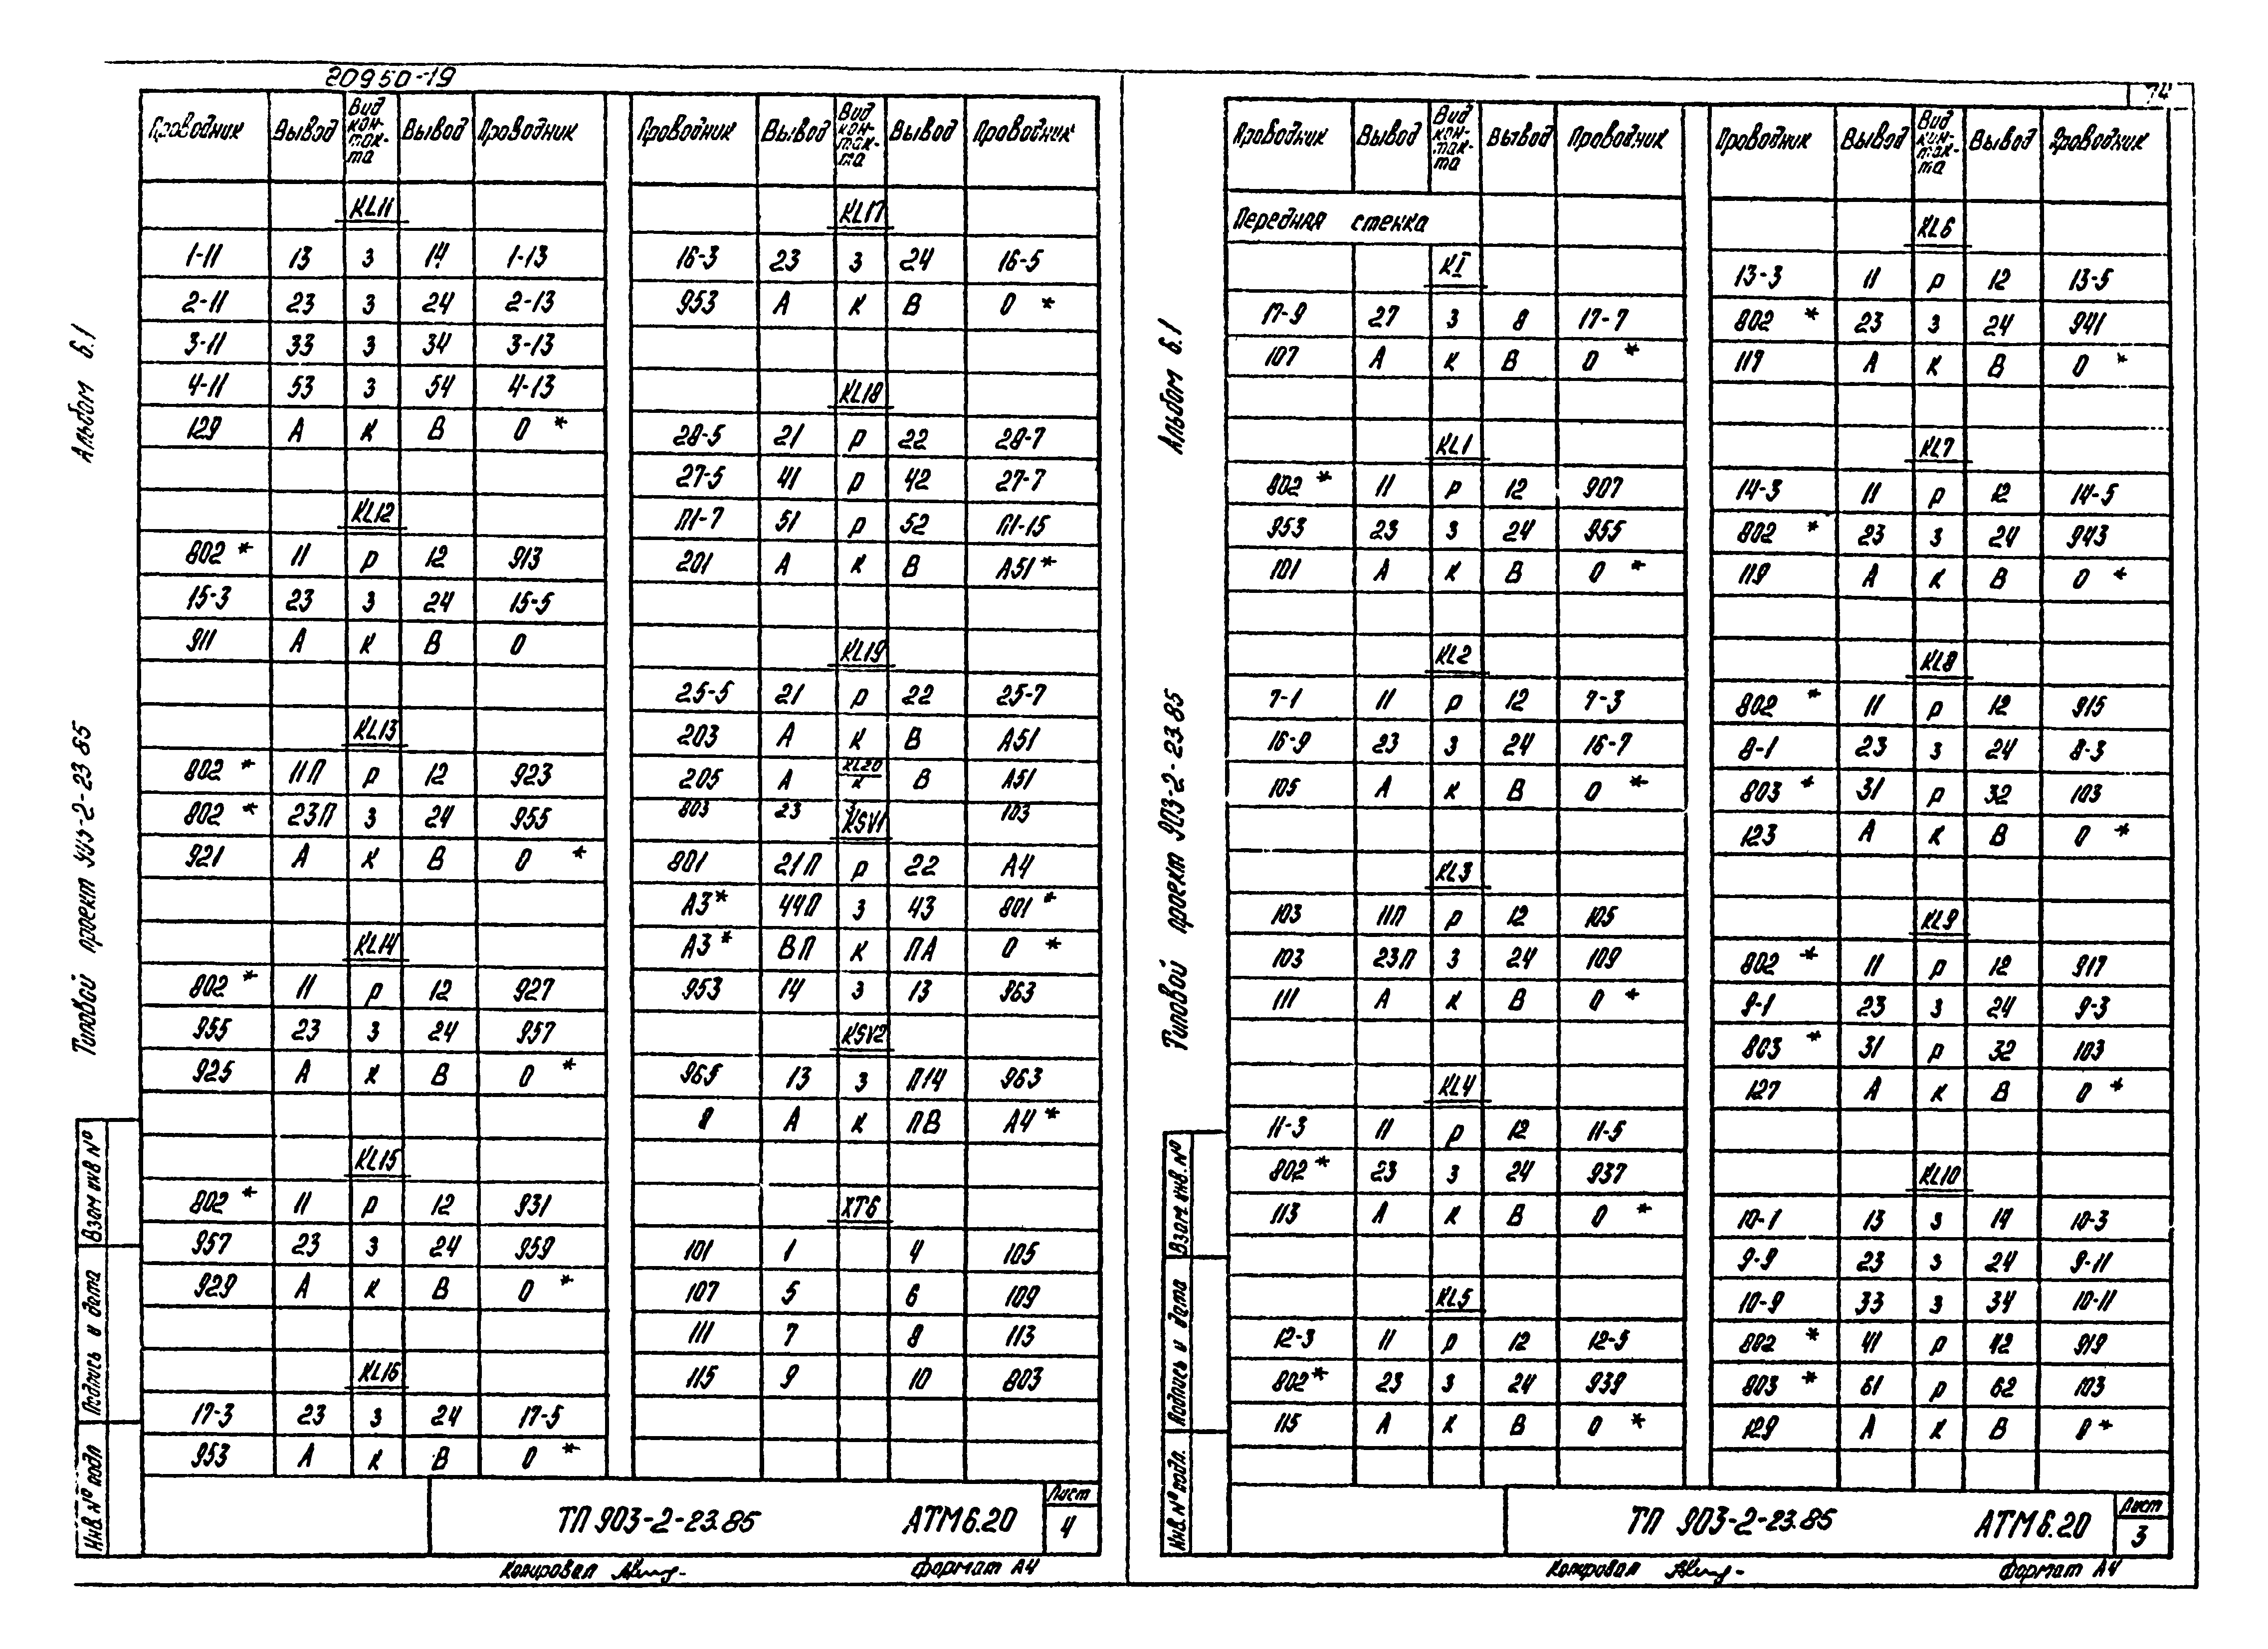 20950-19
Проводник Вывод Вид контакта Вывод Проводник
KL11
1-11 13 з 14 1-13
2-11 23 з 24 2-13
3-11 33 з 34 3-13
4-11 53 з 54 4-13
129 А к В 0 *
KL12
802 * 11 р 12 913
15-3 23 з 24 15-5
911 А к В 0
KL13
802 * 11П р 12 923
802 * 23П з 24 955
921 А к В 0 *
KL14
802 * 11 р 12 927
955 23 з 24 957
925 А к В 0 *
KL15
802 * 11 р 12 931
957 23 з 24 959
929 А к В 0 *
KL16
17-3 23 з 24 17-5
953 А к В 0 *
Проводник Вывод Вид контакта Вывод Проводник
KL17
16-3 23 з 24 16-5
953 А к В 0 *
KL18
28-5 21 р 22 28-7
27-5 41 р 42 27-7
П1-7 51 р 52 П1-15
201 А к В А51 *
KL19
25-5 21 р 22 25-7
203 А к В А51
KL20
205 А к В А51
803 23 з 103
KSV1
801 21П р 22 А4
А3 * 44П з 43 801 *
А3 * ВП к ПА 0 *
953 14 з 13 963
KSV2
965 13 з П14 963
А к ПВ А4 *
ХТ6
101 1 4 105
107 5 6 109
111 7 8 113
115 9 10 803
Альбом 6.1
Типовой проект 903-2-23 85
Взам инв №
Подпись и дата
Инв. № подл
ТП 903-2-23.85 АТМ6.20
Лист
4
Копировал
Формат А4
74
Проводник Вывод Вид контакта Вывод Проводник
Передняя стенка
KI
17-9 27 з 8 17-7
107 А к В 0 *
KL1
802 * 11 р 12 907
953 23 з 24 955
101 А к В 0 *
KL2
7-1 11 р 12 7-3
16-9 23 з 24 16-7
105 А к В 0 *
KL3
103 11П р 12 105
103 23П з 24 109
111 А к В 0 *
KL4
11-3 11 р 12 11-5
802 * 23 з 24 937
113 А к В 0 *
KL5
12-3 11 р 12 12-5
802 * 23 з 24 939
115 А к В 0 *
Проводник Вывод Вид контакта Вывод Проводник
KL6
13-3 11 р 12 13-5
802 * 23 з 24 941
117 А к В 0 *
KL7
14-3 11 р 12 14-5
802 * 23 з 24 943
119 А к В 0 *
KL8
802 * 11 р 12 915
8-1 23 з 24 8-3
803 * 31 р 32 103
123 А к В 0 *
KL9
802 * 11 р 12 917
9-1 23 з 24 9-3
803 * 31 р 32 103
127 А к В 0 *
KL10
10-1 13 з 14 10-3
9-9 23 з 24 9-11
10-9 33 з 34 10-11
802 * 41 р 42 919
803 * 61 р 62 103
129 А к В 0 *
Альбом 6.1
Типовой проект 903-2-23.85
Взам. инв. №
Подпись и дата
Инв. № подл.
ТП 903-2-23.85 АТМ6.20
Лист
3
Копировал
Формат А4